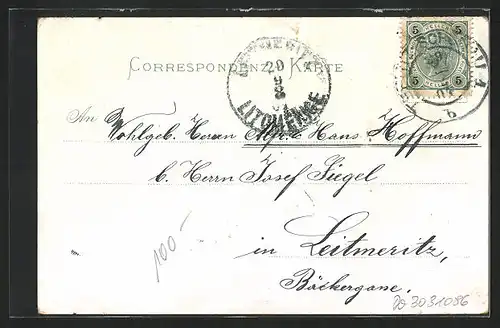 CORRESPONDENZ-KARTE
LEITMERITZ
20
9
LITOMĚŘICE
5 5
5 5
1
b
An
Wohlgeb. Herrn Hans Hoffmann
b. Herrn Josef Siegel
in Leitmeritz,
Bäckergasse.
100.-
3031086